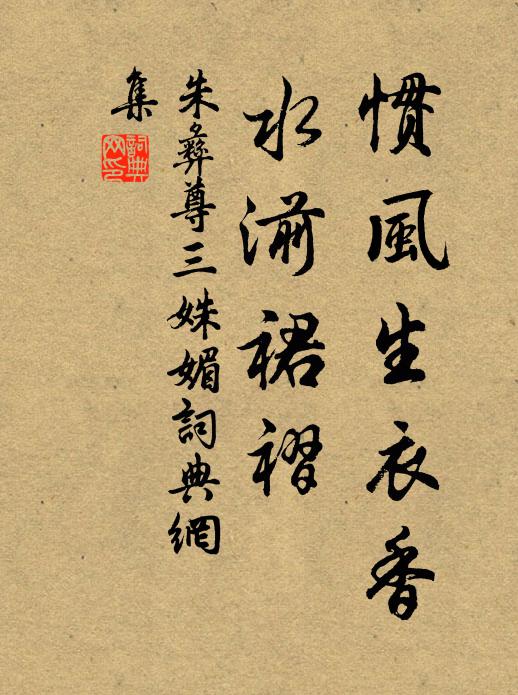 惯風生衣香
水湔裙褶
朱彝尊三姝媚詞典網
集
詞典
网印